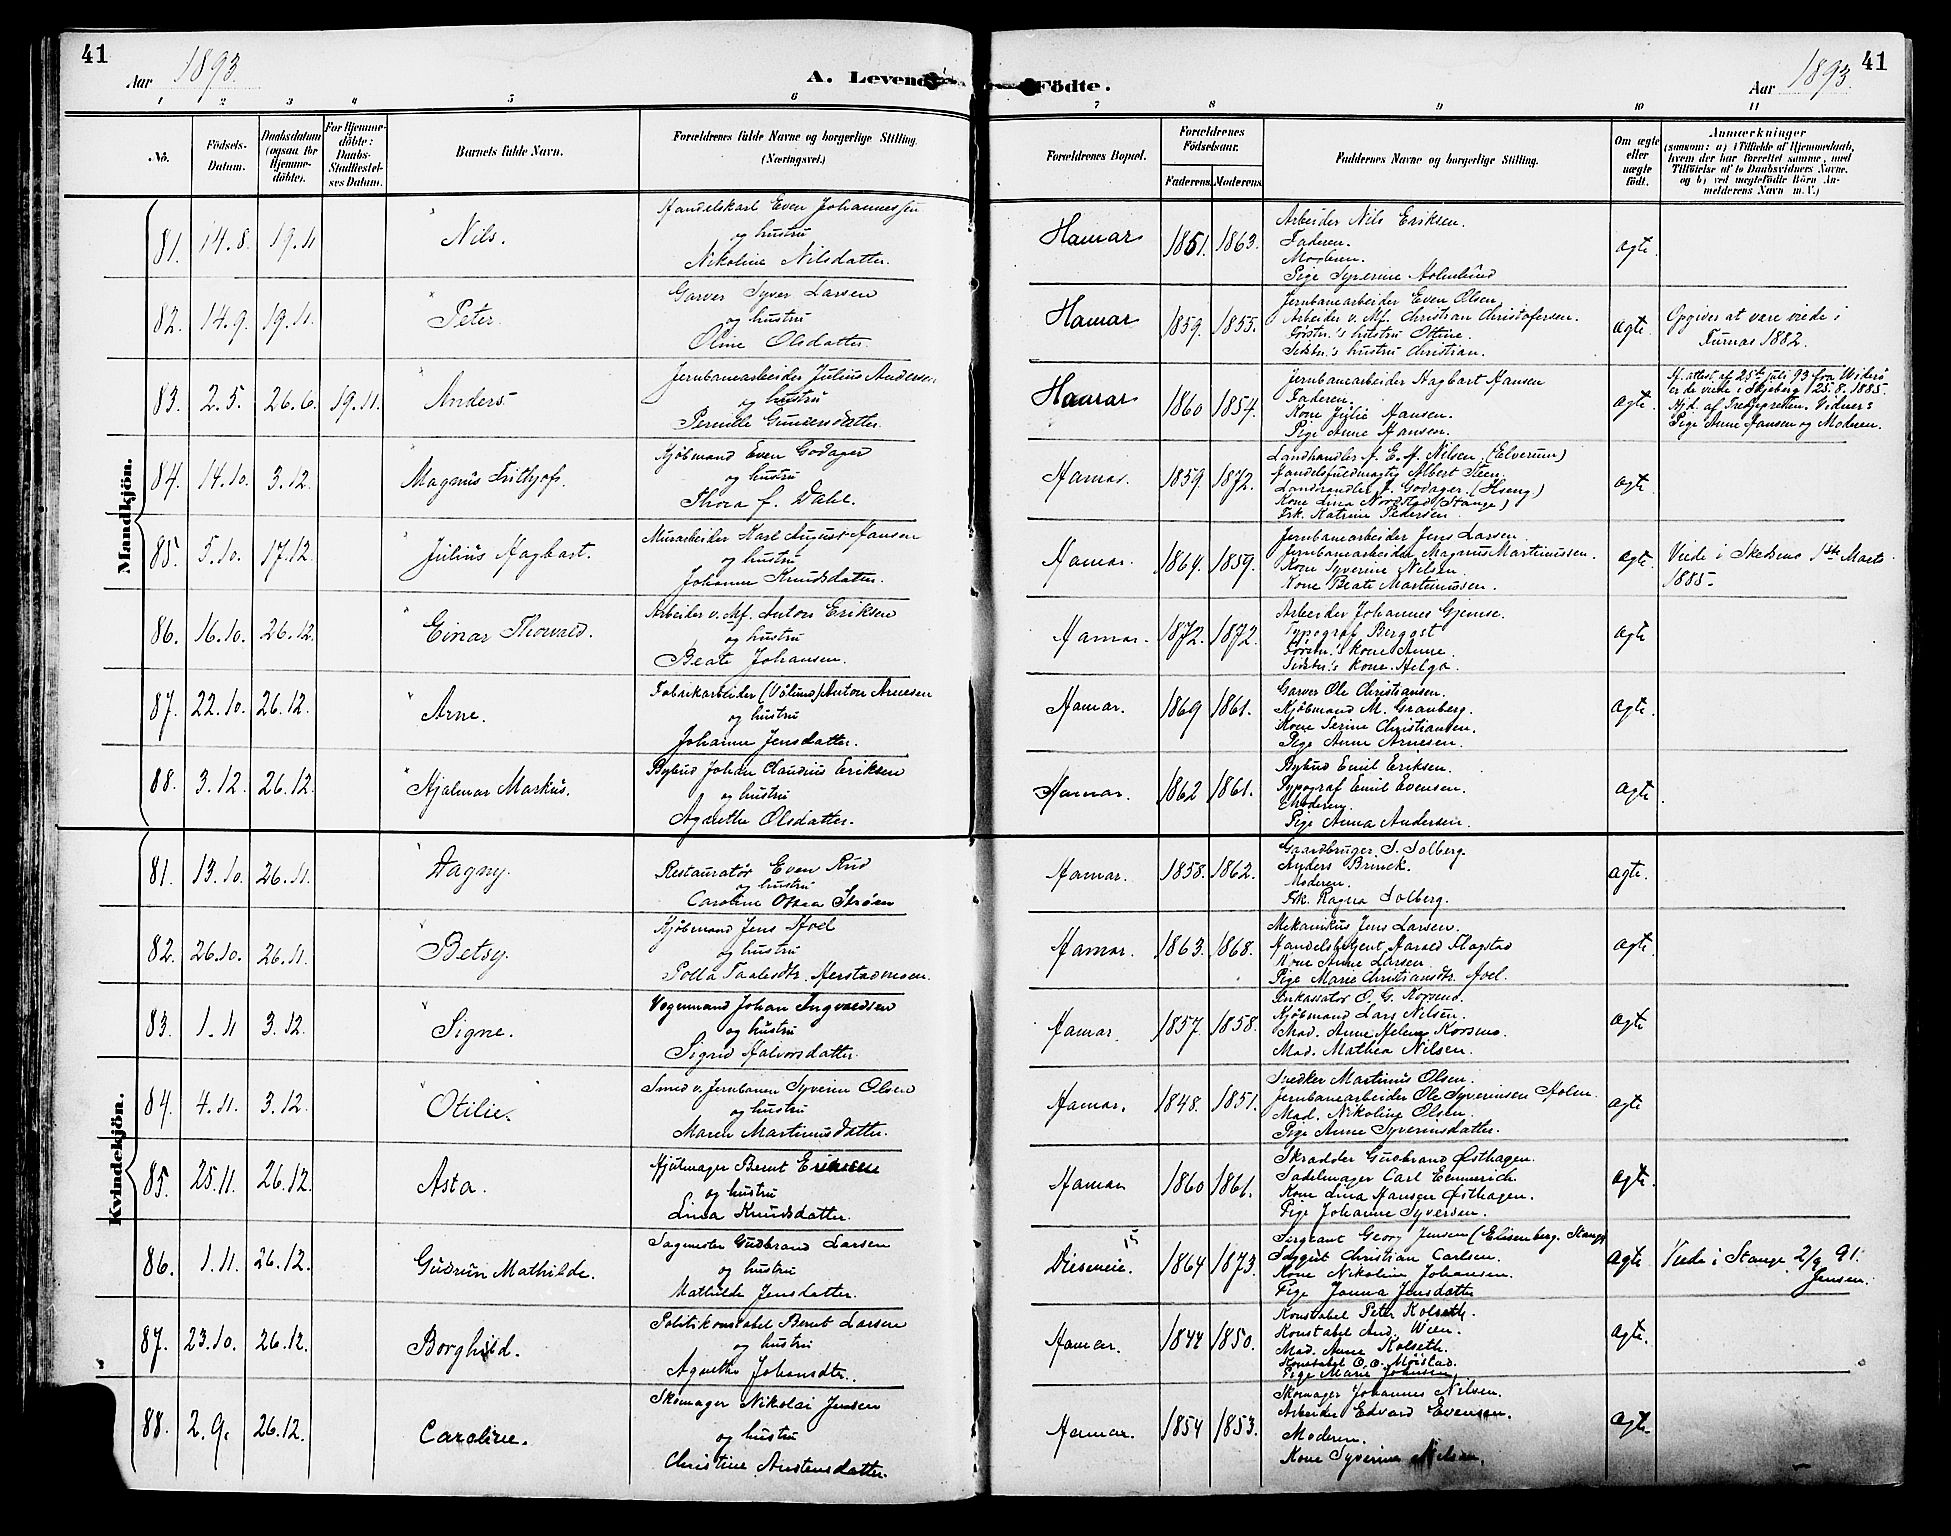 41
Aar 1893.
A. Levende
Födte.
Aar 1893.
41
1 2 3 4 5 6 7 8 9 10 11
No.
Födsels-Datum.
Daabsdatum (ogsaa for Hjemmedöbte).
For Hjemmedöbte: Daabs-Stadfestelses Datum.
Barnets fulde Navn.
Forældrenes fulde Navne og borgerlige Stilling. (Næringsvei.)
Forældrenes Bopæl.
Forældrenes Födselsaar.
Faderens. Moderens.
Faddernes Navne og borgerlige Stilling.
Om ægte eller uægte födt.
Anmærkninger
(saasom: a) i Tilfælde af Hjemmedaab, hvem der har forrettet samme, med Tilföielse af to Daabsvidners Navne, og b) ved uægtefödte Börn Anmelderens Navn m. V.)
Mandkjön.
81. 14.8. 19.11 Nils.
Handelskarl Even Johannessen
og hustru
Nikoline Nilsdatter.
Hamar 1851. 1863.
Arbeider Nils Eriksen.
Faderen.
Moderen.
Pige Syverine Holmlund
ægte
82. 14.9. 19.11. Peter.
Garver Syver Larsen
og hustru
Oline Olsdatter.
Hamar 1859. 1855.
Jernbanearbeider Even Olsen.
Arbeider v. Mf. Christian Christofersen.
Førstn.'s hustru Ottine.
Sidstn.'s hustru Christian.
ægte
Opgives at være viede i
Furnæs 1882.
83. 2.5. 26.6. 19.11. Anders
Jernbanearbeider Julius Andersen
og hustru
Pernille Gundersdatter.
Hamar 1860 1854.
Jernbanearbeider Hagbart Hansen
Faderen.
Kone Julie Hansen.
Pige Anne Hansen.
ægte.
Pige Anne Hansen og Moderen.
84. 14.10. 3.12. Magnus Frithjof.
Kjöbmand Even Godager
og hustru
Thora f. Dahl.
Hamar. 1859. 1872.
Landhandler A. E. A. Nilsen. (Elverum)
Handelsfuldmægtig Albert Steen.
Landhandler J. Godager.
Kone Lina Nordstad (Stange)
Frk. Katrine Pedersen.
ægte.
85. 5.10. 17.12. Julius Hagbart.
Murarbeider Karl August Hansen
og hustru
Johanne Knudsdatter.
Hamar. 1864. 1859.
Jernbanearbeider Jens Larsen.
Jernbanearbeider Magnus Martinussen.
Kone Syverine Nilsen.
Kone Beate Martinussen.
ægte.
Viede i Skedsmo 1ste Marts
1885.
86. 16.10. 26.12. Einar Thorvald.
Arbeider v. Mf. Anton Eriksen
og hustru
Beate Johansen.
Hamar. 1872. 1872.
Arbeider Johannes Gjemse.
Typograf Bergqst
Førstn.'s Kone Anne.
Sidstn.'s Kone Helga.
ægte
87. 22.10. 26.12. Arne.
Fabrikarbeider (Vølund) Anton Arnesen
og hustru
Johanne Jensdatter.
Hamar. 1869 1861.
Garver Ole Christiansen.
Kjöbmand M. Granberg.
Kone Serine Christiansen.
Pige Anne Arnesen.
ægte.
88. 3.12. 26.12. Hjalmar Markus.
Bybud Johan Claudius Eriksen
og hustru
Agnethe Olsdatter.
Hamar. 1862 1861.
Bybud Emil Eriksen.
Typograf Emil Evensen.
Moderen.
Pige Anna Andersen.
ægte.
Kvindekjön.
81. 13.10. 26.11. Dagny.
Restauratør Even Rud
og hustru
Caroline Olsen Strøm
Hamar. 1858. 1862.
Gaardbruger S. Solberg.
Anders Brinck.
Moderen.
Frk. Ragna Solberg.
ægte.
82. 26.10. 26.11. Betsy.
Kjöbmand Jens Hoel
og hustru
Hamar. 1863. 1868.
Mekanikus Jens Larsen.
Handelsagent Harald Flagstad
Kone Anne Larsen.
Pige Marie Christiansdtr. Hoel.
ægte
83. 1.11 3.12. Signe.
Vognmand Johan Ingvaldsen
og hustru
Signe Halvorsdatter.
Hamar. 1857. 1858.
Inkassator O. G. Korsmo.
Kjöbmand Lars Nilsen.
Mad. Anne Helene Korsmo.
Mad. Mathea Nilsen.
ægte
84. 4.11. 3.12. Otilie.
Smed v. Jernbanen Syverin Olsen
og hustru
Maren Martinusdatter.
Hamar. 1848. 1851.
Snedker Martinus Olsen.
Jernbanearbeider Ole Syverinsen Holm.
Mad. Nikoline Olsen.
Pige Anne Syverinsdatter.
ægte
85. 25.11. 26.12. Asta.
Hjulmager Bernt Eriksen
og hustru
Lina Knudsdatter.
Hamar 1860 1861.
Skrædder Gudbrand Østhagen.
Sadelmager Carl Emmerich.
Kone Lina Hansen Østhagen.
Pige Johanne Syversen.
ægte.
86. 1.11. 26.12. Gudrun Mathilde.
Sagmester Gudbrand Larsen
og hustru
Mathilde Jensdatter.
Diseneie. 1864 1873.
Sergeant Georg Jensen
Christian Carlsen.
Kone Nikoline Johansen.
Pige Janna Jensdatter
ægte
Viede i Stange 2/9 91.
Jensen.
87. 23.10. 26.12. Borghild.
Politikonstabel Bernt Larsen
og hustru
Agnethe Johansdtr.
Hamar. 1844 1850.
Konstabel Peter Kolseth.
Konstabel And. Wien.
Mad. Anne Kolseth.
Konstabel O. O. Moistad.
Pige Marie Johnsen
ægte.
88. 2.9. 26.12. Caroline.
Skomager Nikolai Jensen
og hustru
Christine Austensdatter.
Hamar. 1854 1853.
Skomager Johannes Nilsen.
Arbeider Edvard Evensen.
Moderen.
Kone Syverine Nilsen.
ægte.